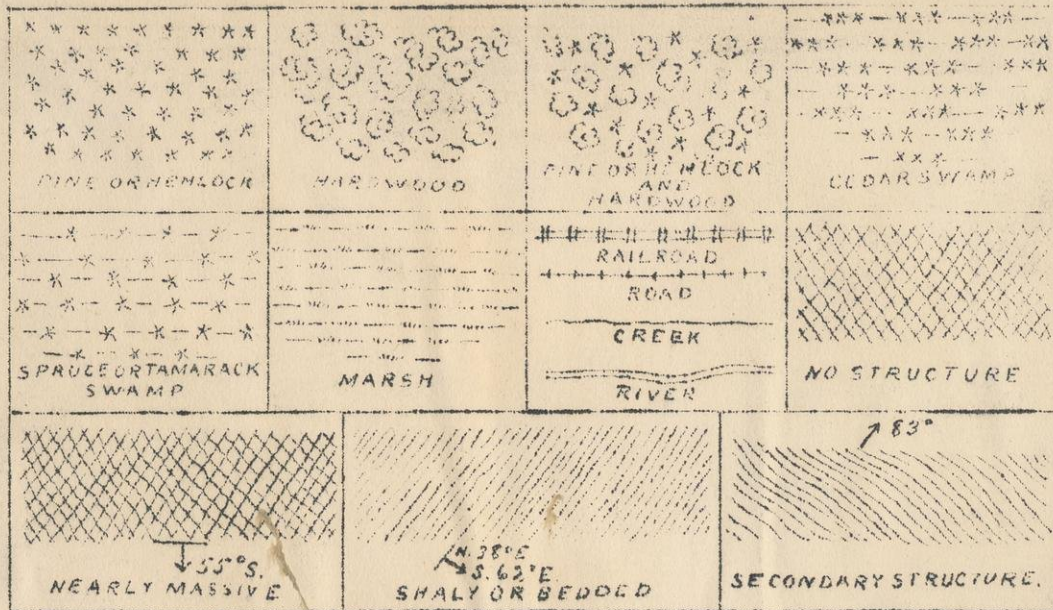 PINE OR HEMLOCK
HARDWOOD
PINE OR HEMLOCK
AND
HARDWOOD
CEDAR SWAMP
SPRUCE OR TAMARACK
SWAMP
MARSH
RAILROAD
ROAD
CREEK
RIVER
NO STRUCTURE
55° S.
NEARLY MASSIVE
N. 38° E
S. 62° E.
SHALY OR BEDDED
83°
SECONDARY STRUCTURE.